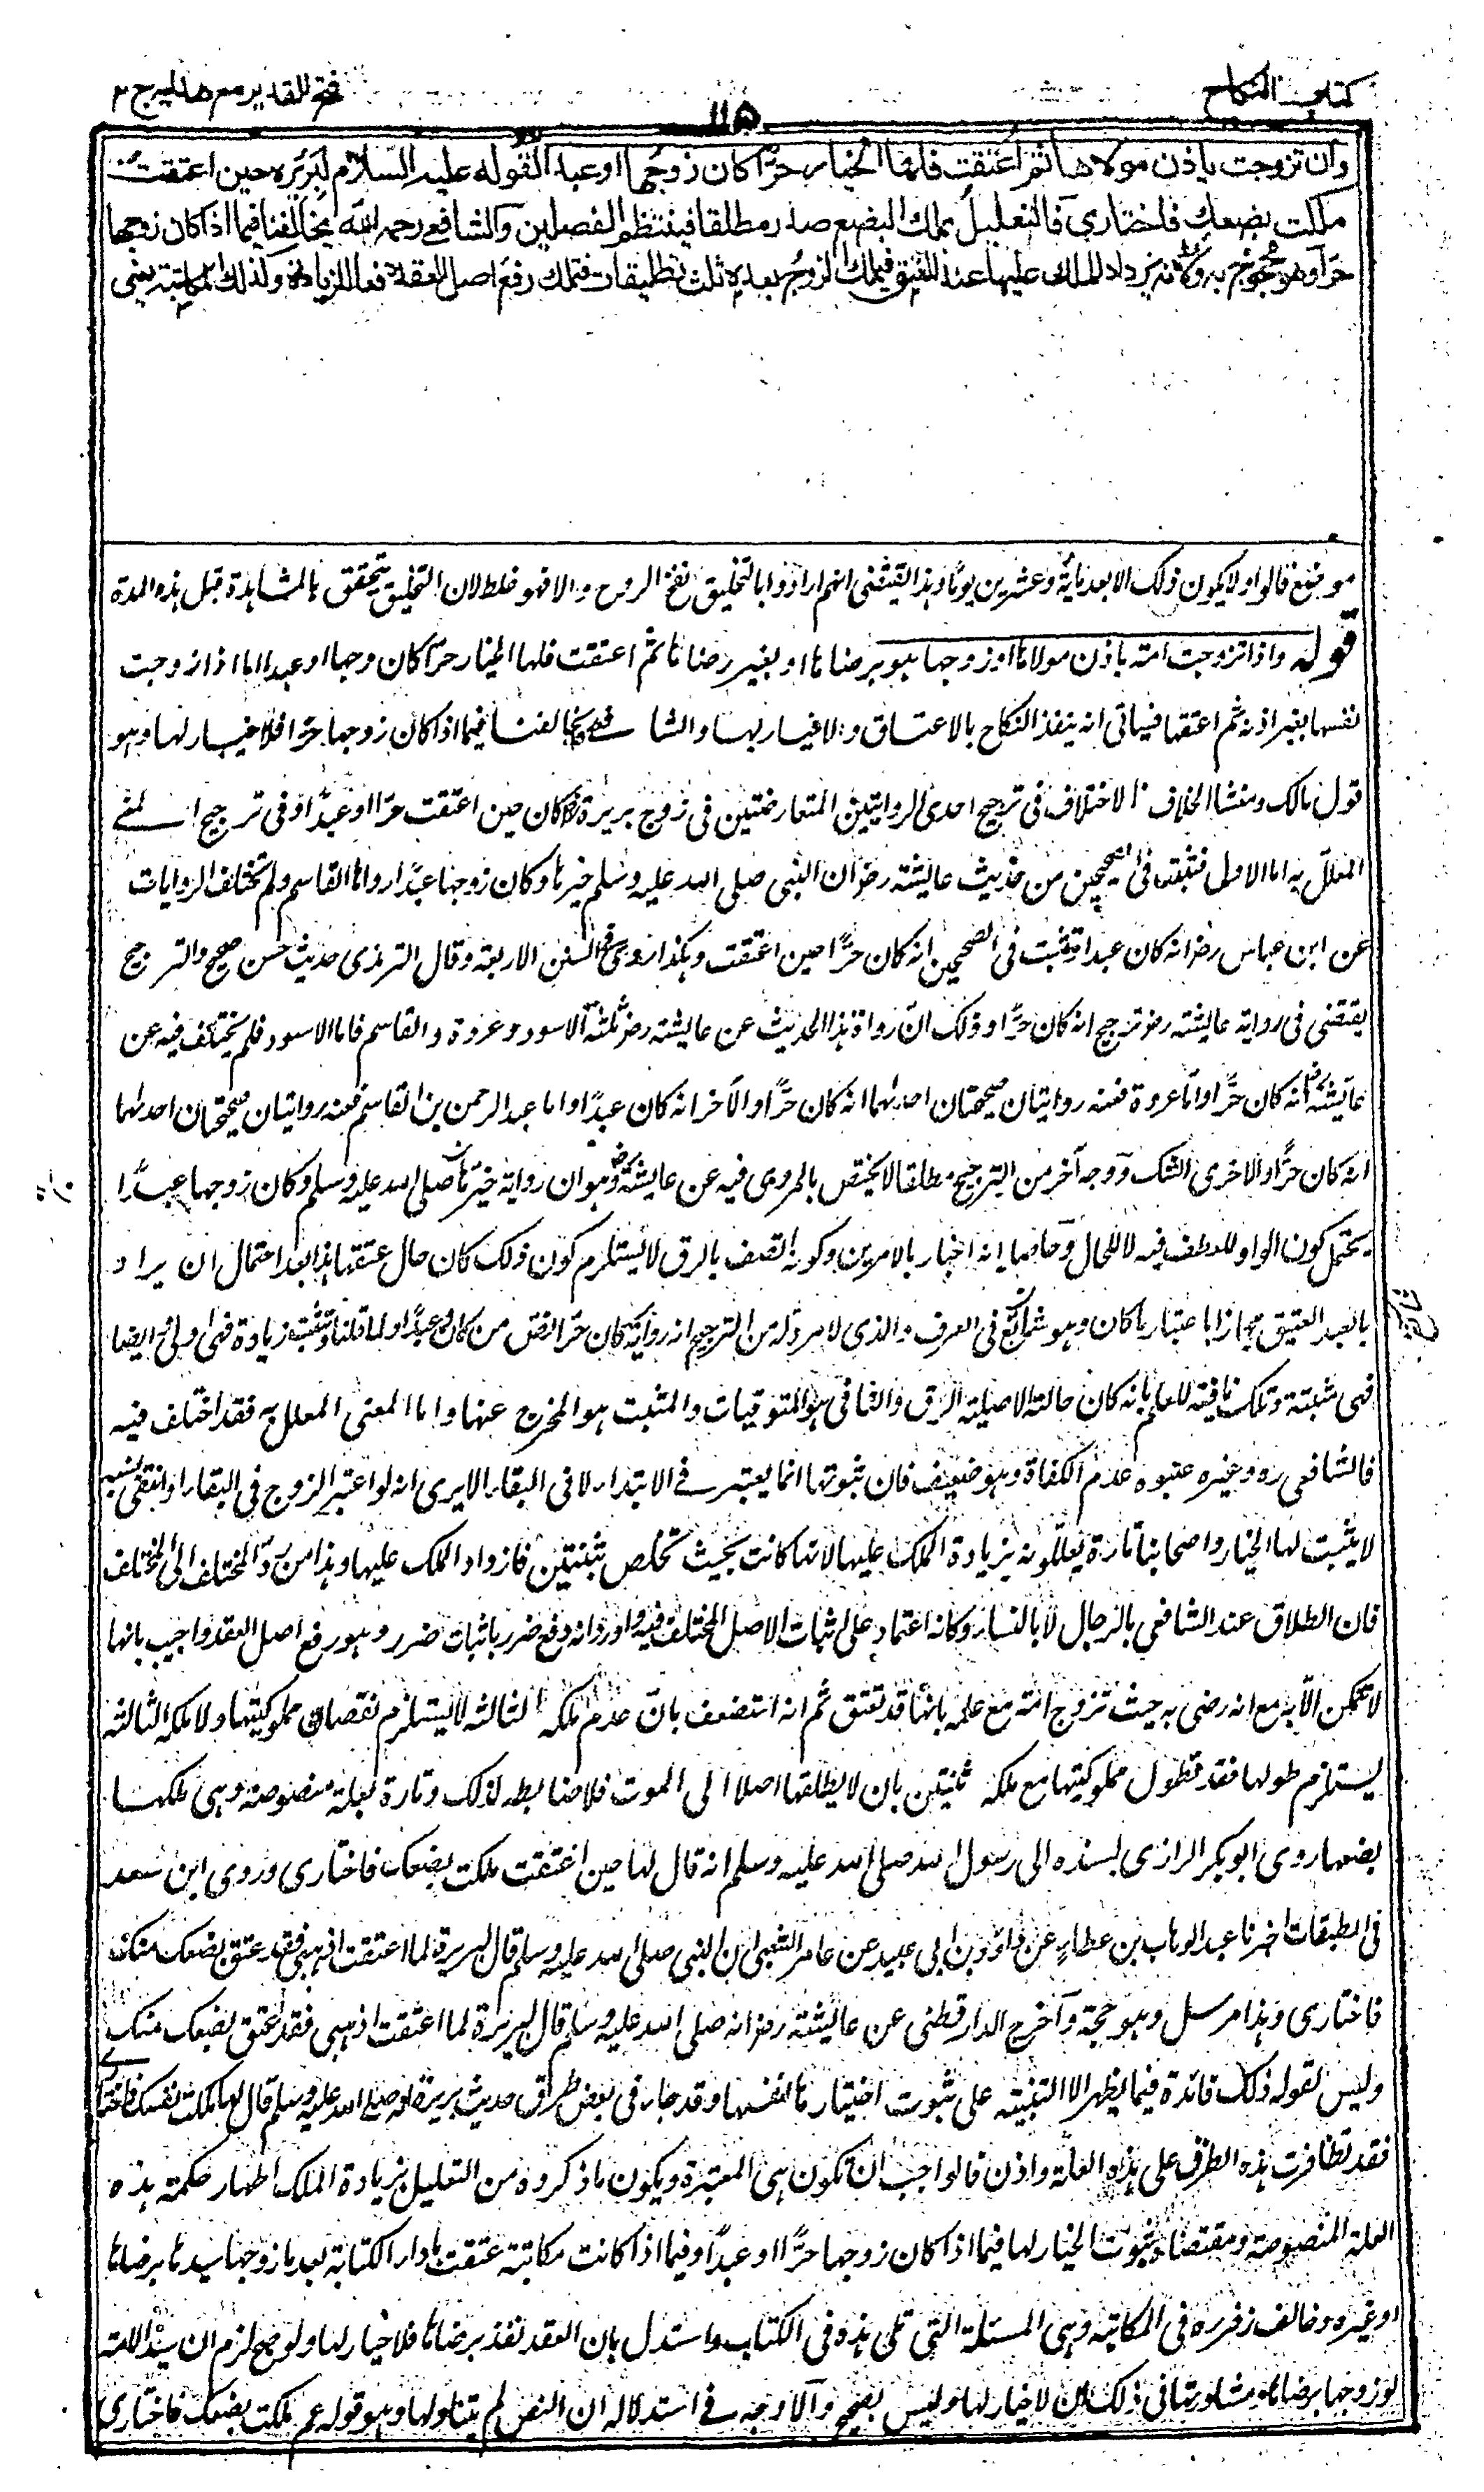 كتاب النكاح
١١٥
فتح القدير مع هدايه ج ٢
وان تزوجت باذن مولاها ثم اعتقت فلها الخيار حرًّا كان زوجها او عبدا لقوله عليه السلام لبريرة حين اعتقت
ملكت بضعك فاختاري فالتعليل بملك البضع صدر مطلقا فينتظم الفصلين والشافعي رحمه الله يخالفنا فيما اذا كان زوجها
حرا وهو محجوج به ولانه يزداد الملك عليها عند العتق فيملك الزوج بعده ثلث تطليقات فتملك رفع اصل العقد دفعا للزيادة وكذلك المكاتبة يعني
موضع قالوا ولا يكون ذلك الا بعد مائة وعشرين يوما وهذا يقتضي انهم ارادوا بالتخليق نفخ الروح والا فهو غلط لان التخليق يتحقق بالمشاهدة قبل هذه المدة
قوله واذا تزوجت امة باذن مولاها او زوجها هو برضاها او بغير رضاها ثم اعتقت فلها الخيار حرّا كان زوجها او عبدا اما اذا زوجت
نفسها بغير اذنه ثم اعتقها فسياتي انه ينفذ النكاح بالاعتاق ولا خيار لها والشافعي يخالفنا فيما اذا كان زوجها حرّا فلا خيار لها وهو
قول مالك ومنشا الخلاف الاختلاف في ترجيح احدى الروايتين المتعارضتين في زوج بريرة اكان حين اعتقت حرّا او عبدًا وفي ترجيح المعنى
المعلل به اما الاول فثبت في الصحيحين من حديث عايشة رض ان النبي صلى الله عليه وسلم خيرها وكان زوجها عبدًا رواها القاسم ولم تختلف الروايات
عن ابن عباس رض انه كان عبدا وثبت في الصحيحين انه كان حرًّا حين اعتقت وهكذا روي في السنن الاربعة وقال الترمذي حديث حسن صحيح والترجيح
يقتضي في رواية عايشة رض ترجيح انه كان حرًّا وذلك انّ رواة هذا الحديث عن عايشة رض ثلثة الاسود وعروة والقاسم فاما الاسود فلم يختلف فيه عن
عايشة رض انه كان حرًّا واما عروة فعنه روايتان صحيحتان احدىهما انه كان حرًّا والاخر انه كان عبدًا واما عبد الرحمن بن القاسم فعنه روايتان صحيحتان احدىهما
انه كان حرًّا والاخرى الشك ووجه آخر من الترجيح مطلقا لا يختص بالمروي فيه عن عايشة رض وهو ان رواية خيرها صلى الله عليه وسلم وكان زوجها عبدًا
يحتمل كون الواو للعطف فيه لا للحال وحاصلها انه اخبار بالامرين وكونه اتصف بالرق لا يستلزم كون ذلك كان حال عتقها هذا بعد احتمال ان يراد
بالعبد العتيق مجازا باعتبار ما كان وهو شائع في العرف والذي لا مرد له من الترجيح ان رواية كان حرّا انص من كان عبدًا ولما قلنا وتثبت زيادة فهي اولى وايضا
فهي مثبتة وتلك نافية للعلم بانه كان حالته الاصلية الرق والنافي هو المبقيات والمثبت هو المخرج عنها واما المعنى المعلل به فقد اختلف فيه
فالشافعي ره وغيره عينوه عدم الكفاءة وهو ضعيف فان ثبوتها انما يعتبر في الابتداء لا في البقاء الا يرى انه لو اعتبر الزوج في البقاء او انتفى نسبه
لا يثبت لها الخيار واصحابنا تارة يعللونه بزيادة الملك عليها لانها كانت بحيث تخلص بثنتين فازداد الملك عليها وهذا من ردّ المختلف الى المختلف
فان الطلاق عند الشافعي بالرجال لا بالنساء وكانه اعتماد على اثبات الاصل المختلف فيه واورد انه دفع ضرر باثبات ضرر وهو رفع اصل العقد واجيب بانها
لا تتمكن الا به مع انه رضي به حيث تزوج امة مع علمه بانها قد تعتق ثم انه استضعف بانّ عدم ملكه الثالثة لا يستلزم نقصان مملوكيتها ولا ملكه الثالثة
يستلزم طولها فقد تطول مملوكيتها مع ملكه ثنتين بان لا يطلقها اصلا الى الموت فلا ضابطه لذلك وتارة بعلة منصوصة وهي ملكها
بضعها روى ابو بكر الرازي بسنده الى رسول الله صلى الله عليه وسلم انه قال لها حين اعتقت ملكت بضعك فاختاري وروى ابن سعد
في الطبقات اخبرنا عبد الوهاب بن عطاء عن داؤد بن ابي هند عن عامر الشعبي ان النبي صلى الله عليه وسلم قال لبريرة لما اعتقت اذهبي فقد عتق بضعك معك
فاختاري وهذا مرسل وهو حجة وآخرج الدارقطني عن عايشة رض انه صلى الله عليه وسلم قال لبريرة لما اعتقت اذهبي فقد عتق بضعك معك
وليس لقوله ذلك فائدة فيما يظهر الا التنبيه على ثبوت اختيارها لنفسها وقد جاء في بعض طرق حديث بريرة انه صلى الله عليه وسلم قال لها ملكت نفسك فاختاري
فقد تظافرت هذه الطرق على هذه العلة واذن فالواجب ان تكون هي المعتبرة ويكون ما ذكروه من التعليل بزيادة الملك اظهار حكمة هذه
العلة المنصوصة ومقتضاه ثبوت الخيار لها فيما اذا كان زوجها حرًّا او عبدًا وفيما اذا كانت مكاتبة عتقت باداء الكتابة بعد ما زوجها سيدها برضاها
او غيره وخالف زفر ره في المكاتبة وهي المسئلة التي تلي هذه في الكتاب واستدل بان العقد نفذ برضاها فلا خيار لها ولو صح لزم ان سيد الامة
لو زوجها برضاها ومشاورتها في ذلك ان لا خيار لها وليس بصحيح وآلاوجه في استدلاله ان النص لم يتناولها وهو قوله عم ملكت بضعك فاختاري